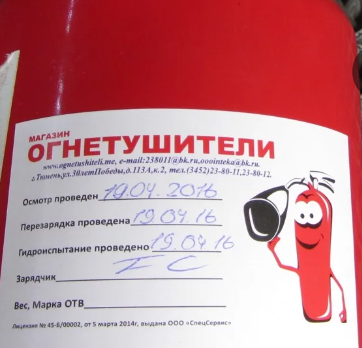 МАГАЗИН
ОГНЕТУШИТЕЛИ
www.ognetushiteli.me, e-mail:238011@bk.ru,ooointeka@bk.ru.
г.Тюмень,ул.30летПобеды,д.113А,к.2, тел.(3452)23-80-11,23-80-12.
Осмотр проведен 19.04.2016
Перезарядка проведена 19 04 16
Гидроиспытание проведено 19.04 16
Зарядчик
Вес, Марка ОТВ
Лицензия № 45-Б/00002, от 5 марта 2014г, выдана ООО «СпецСервис»